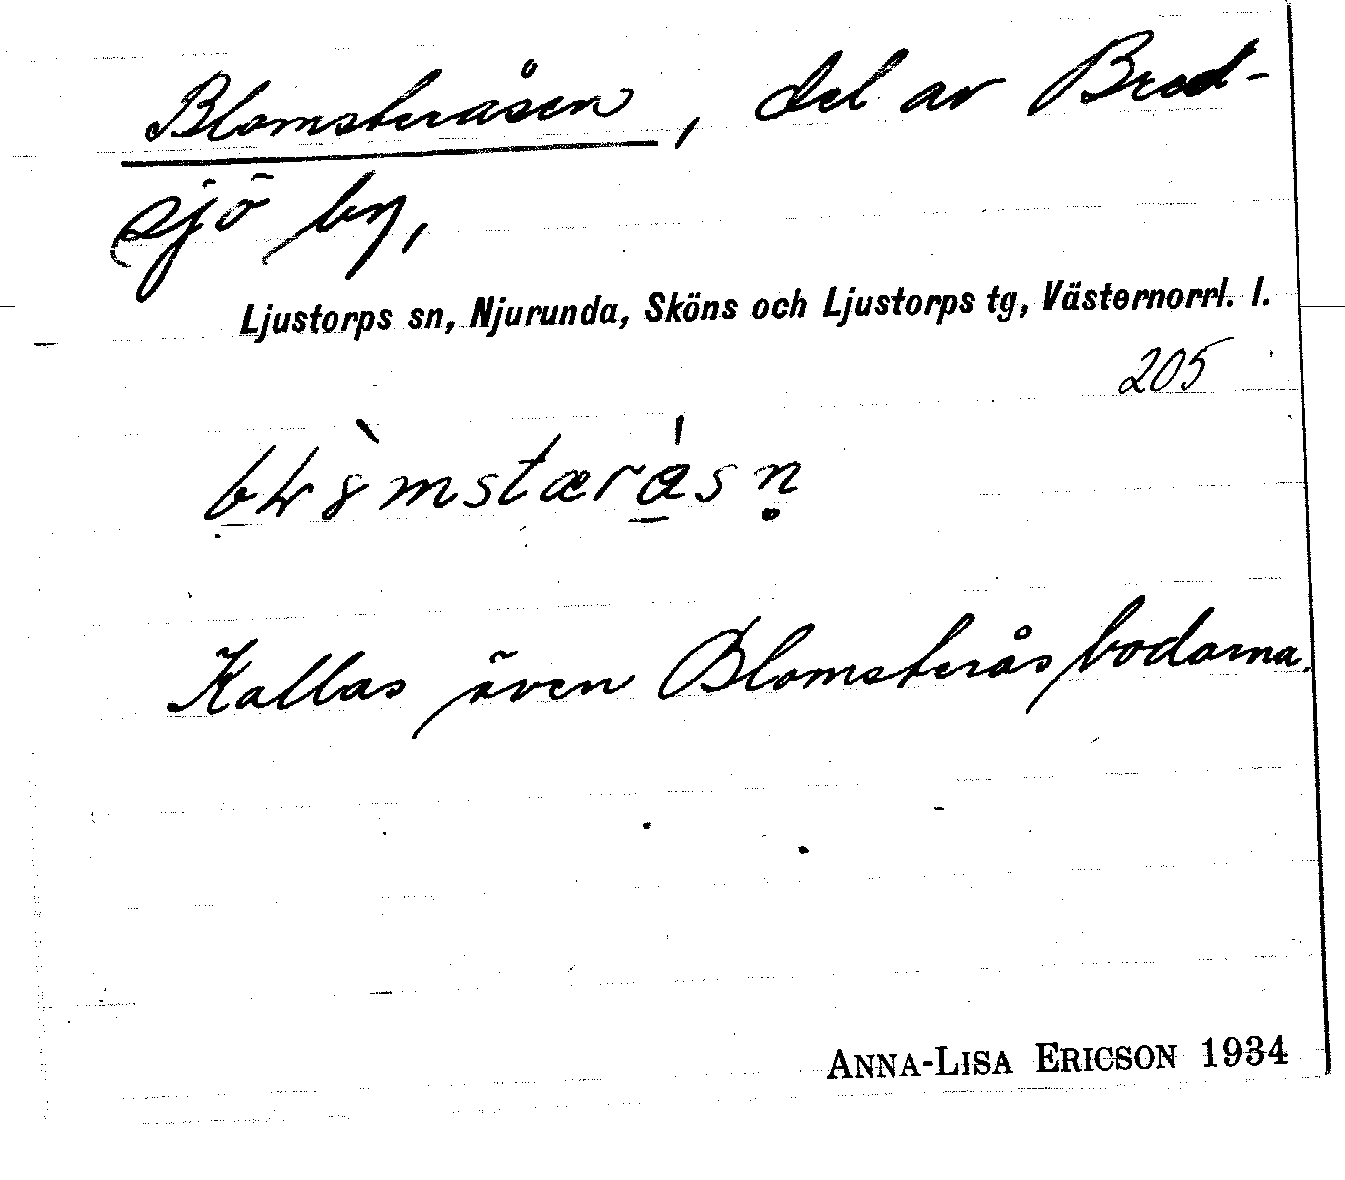 Blomsteråsen, del av Bred-
sjö by,
Ljustorps sn, Njurunda, Sköns och Ljustorps tg, Västernorrl. l.
205
Kallas även Blomsteråsbodarna.
ANNA-LISA ERICSON 1934